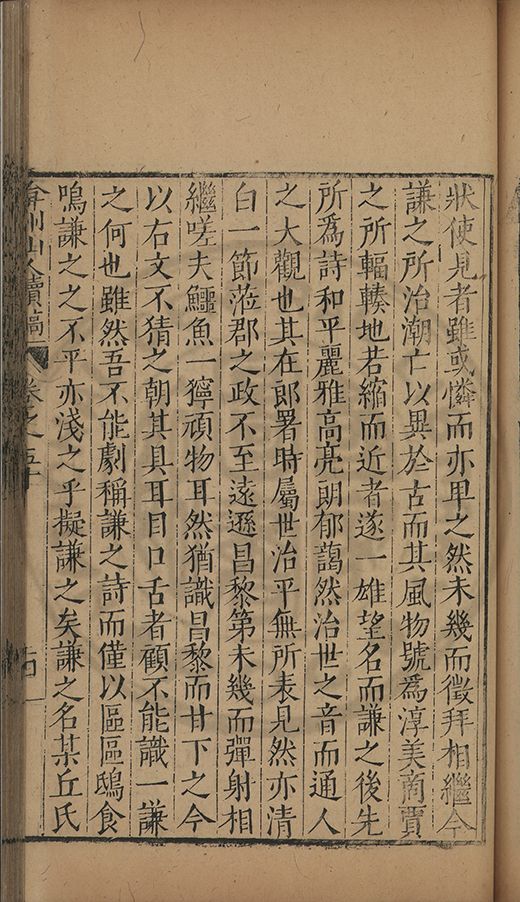 狀使見者雖或憐而亦卑之然未幾而徵拜相繼今
謙之所治潮亡以異於古而其風物號爲淳美商賈
之所輻輳地若縮而近者遂一雄望名而謙之後先
所爲詩和平麗雅高亮朗郁藹然治世之音而通人
之大觀也其在郎署時屬世治平無所表見然亦清
白一節蒞郡之政不至遠遜昌黎第未幾而彈射相
繼嗟夫鱷魚一獰頑物耳然猶識昌黎而甘下之今
以右文不猜之朝其具耳目口舌者顧不能識一謙
之何也雖然吾不能劇稱謙之詩而僅以區區鴟食
鳴謙之之不平亦淺之乎擬謙之矣謙之名某丘氏
弇州山人續稿 卷之五十 十四